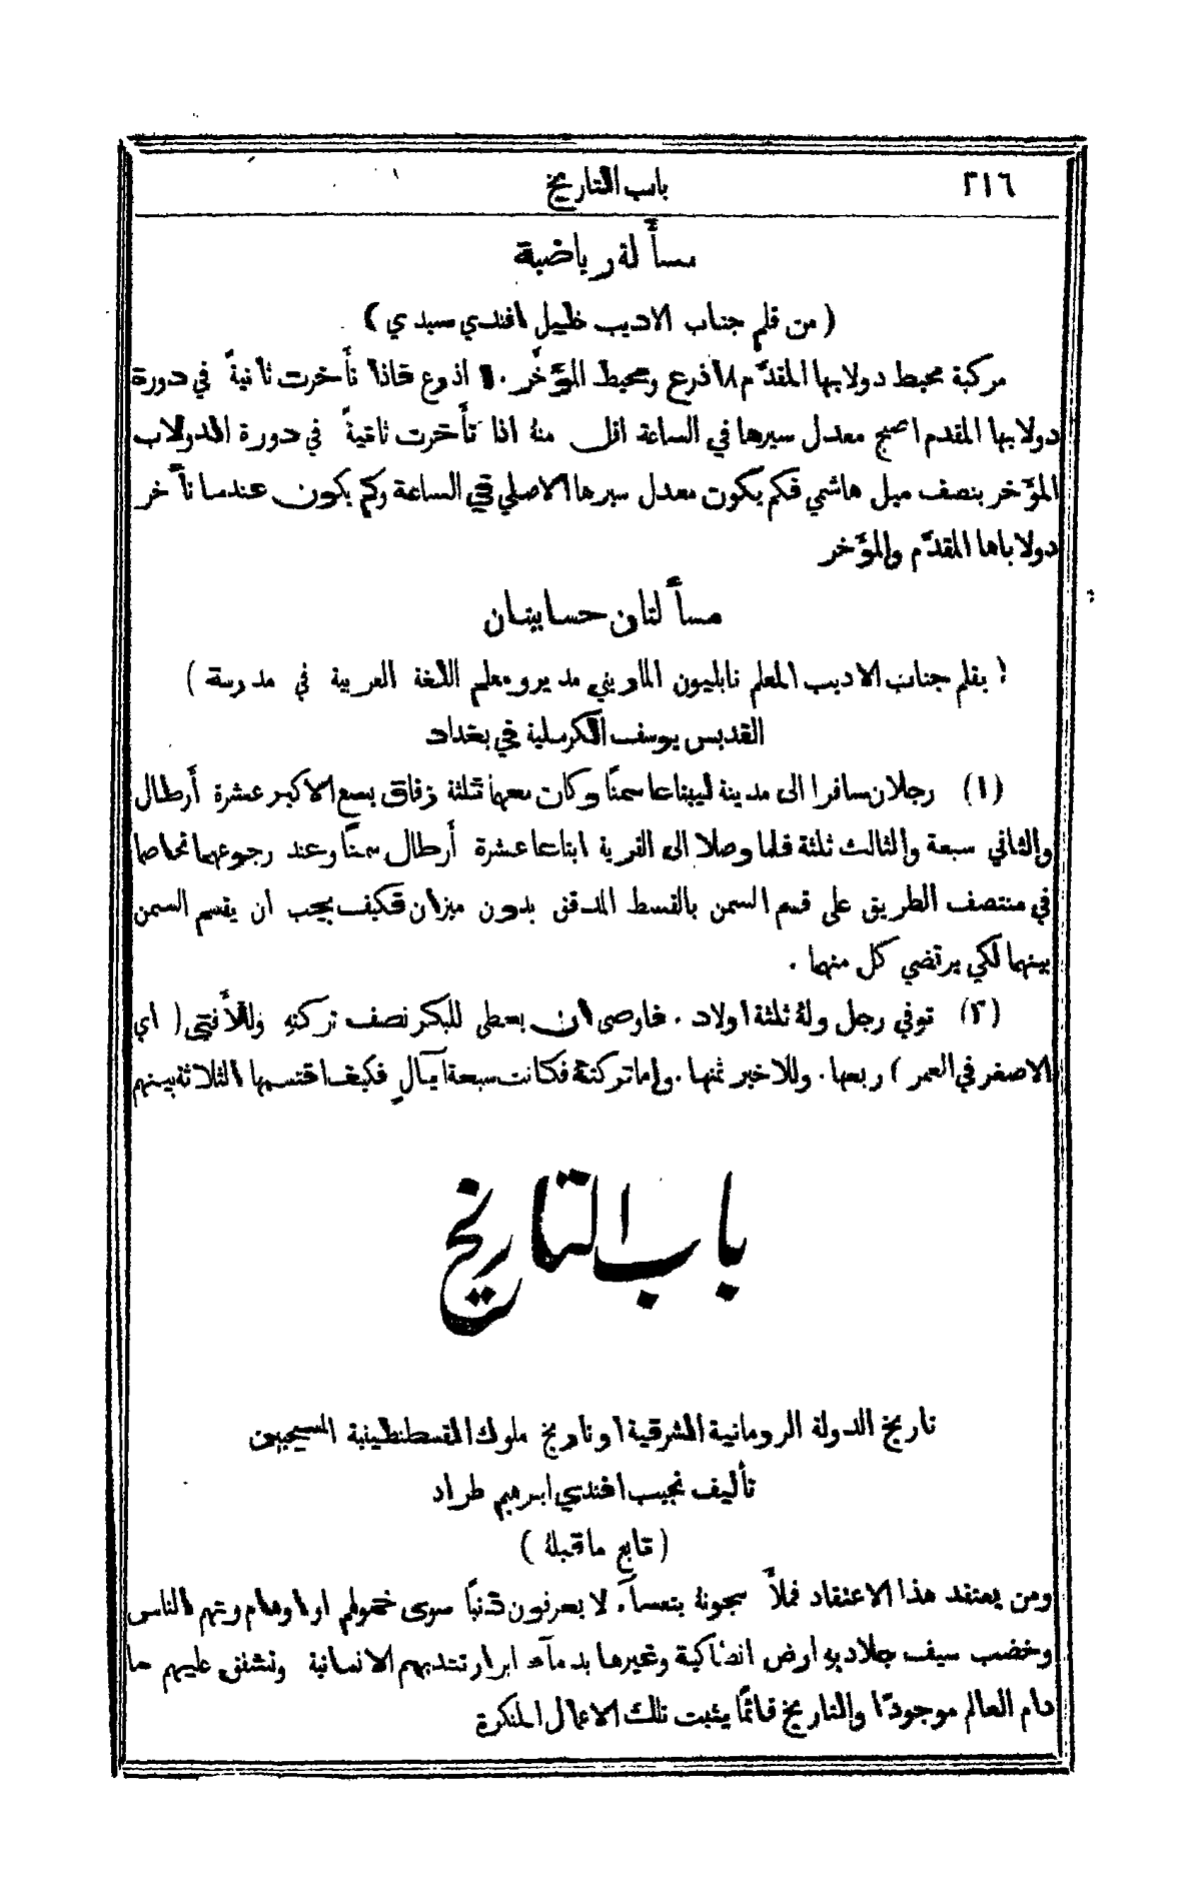 ٣١٦
باب التاريخ
مسألة رياضية
(من قلم جناب الاديب خليل افندي سيدي)
مركبة محيط دولابها المقدّم ٨ اذرع ومحيط المؤَخّر ١٠ اذرع فاذا تأَخرت ثانيةً في دورة
دولابها المقدم اصبح معدل سيرها في الساعة اقل منهُ اذا تأَخرت ثانيةً في دورة الدولاب
المؤَخر بنصف ميل هاشمي فكم يكون معدل سيرها الاصلي في الساعة وكم يكون عندما تأَخر
دولاباها المقدّم والمؤَخر
مسأَلتان حسابيتان
(بقلم جناب الاديب المعلم نابليون الماريني مدير ومعلم اللغة العربية في مدرسة)
القديس يوسف الكرملية في بغداد
(١) رجلان سافرا الى مدينة ليبتاعا سمنًا وكان معهما ثلثة زقاق يسع الاكبر عشرة أرطال
والثاني سبعة والثالث ثلثة فلما وصلا الى القرية ابتاعا عشرة أرطال سمنًا وعند رجوعهما تخاصما
في منتصف الطريق على قسم السمن بالقسط المدقق بدون ميزان فكيف يجب ان يقسم السمن
بينهما لكي يرتضي كل منهما .
(٢) توفي رجل ولهُ ثلثة اولاد . فاوصى ان يعطى للبكر نصف تركتهِ وللأَفتى (اي
الاصغر في العمر) ربعها . وللاخير ثمنها . واما تركتهُ فكانت سبعة آبالٍ فكيف اقتسمها الثلاثة بينهم
باب التاريخ
تاريخ الدولة الرومانية الشرقية او تاريخ ملوك القسطنطينية المسيحيين
تأليف نجيب افندي ابرهيم طراد
(تابع ما قبلهُ)
ومن يعتقد هذا الاعتقاد فملأَ سجونهُ بتعسآَء لا يعرفون ذنبًا سوى خمولهم او اوهام وتهم الناس
وخضب سيف جلاديهِ ارض انطاكية وغيرها بدمآء ابرار تندبهم الانسانية وتشفق عليهم ما
دام العالم موجودًا والتاريخ قائمًا يثبت تلك الاعمال المنكرة